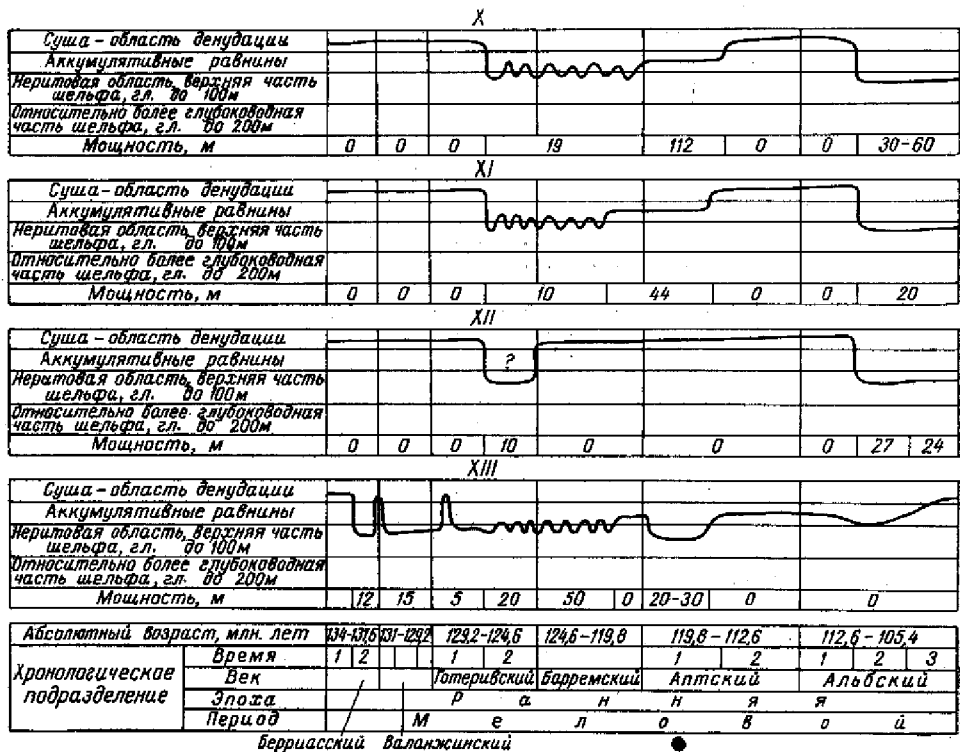 X
Суша – область денудации
Аккумулятивные равнины
Неритовая область, верхняя часть
шельфа, гл. до 100м
Относительно более глубоководная
часть шельфа, гл. до 200м
Мощность, м 0 0 0 19 112 0 0 30-60
XI
Суша – область денудации
Аккумулятивные равнины
Неритовая область, верхняя часть
шельфа, гл. до 100м
Относительно более глубоководная
часть шельфа, гл. до 200м
Мощность, м 0 0 0 10 44 0 0 20
XII
Суша – область денудации
Аккумулятивные равнины ?
Неритовая область, верхняя часть
шельфа, гл. до 100м
Относительно более глубоководная
часть шельфа, гл. до 200м
Мощность, м 0 0 0 10 0 0 0 27 24
XIII
Суша – область денудации
Аккумулятивные равнины
Неритовая область, верхняя часть
шельфа, гл. до 100м
Относительно более глубоководная
часть шельфа, гл. до 200м
Мощность, м 12 15 5 20 50 0 20-30 0 0
Абсолютный возраст, млн. лет 134-131,6 131-129,2 129,2-124,6 124,6-119,8 119,8-112,6 112,6-105,4
Хронологическое подразделение
Время 1 2 1 2 1 2 1 2 3
Век Готеривский Барремский Аптский Альбский
Эпоха Ранняя
Период Меловой
Берриасский Валанжинский